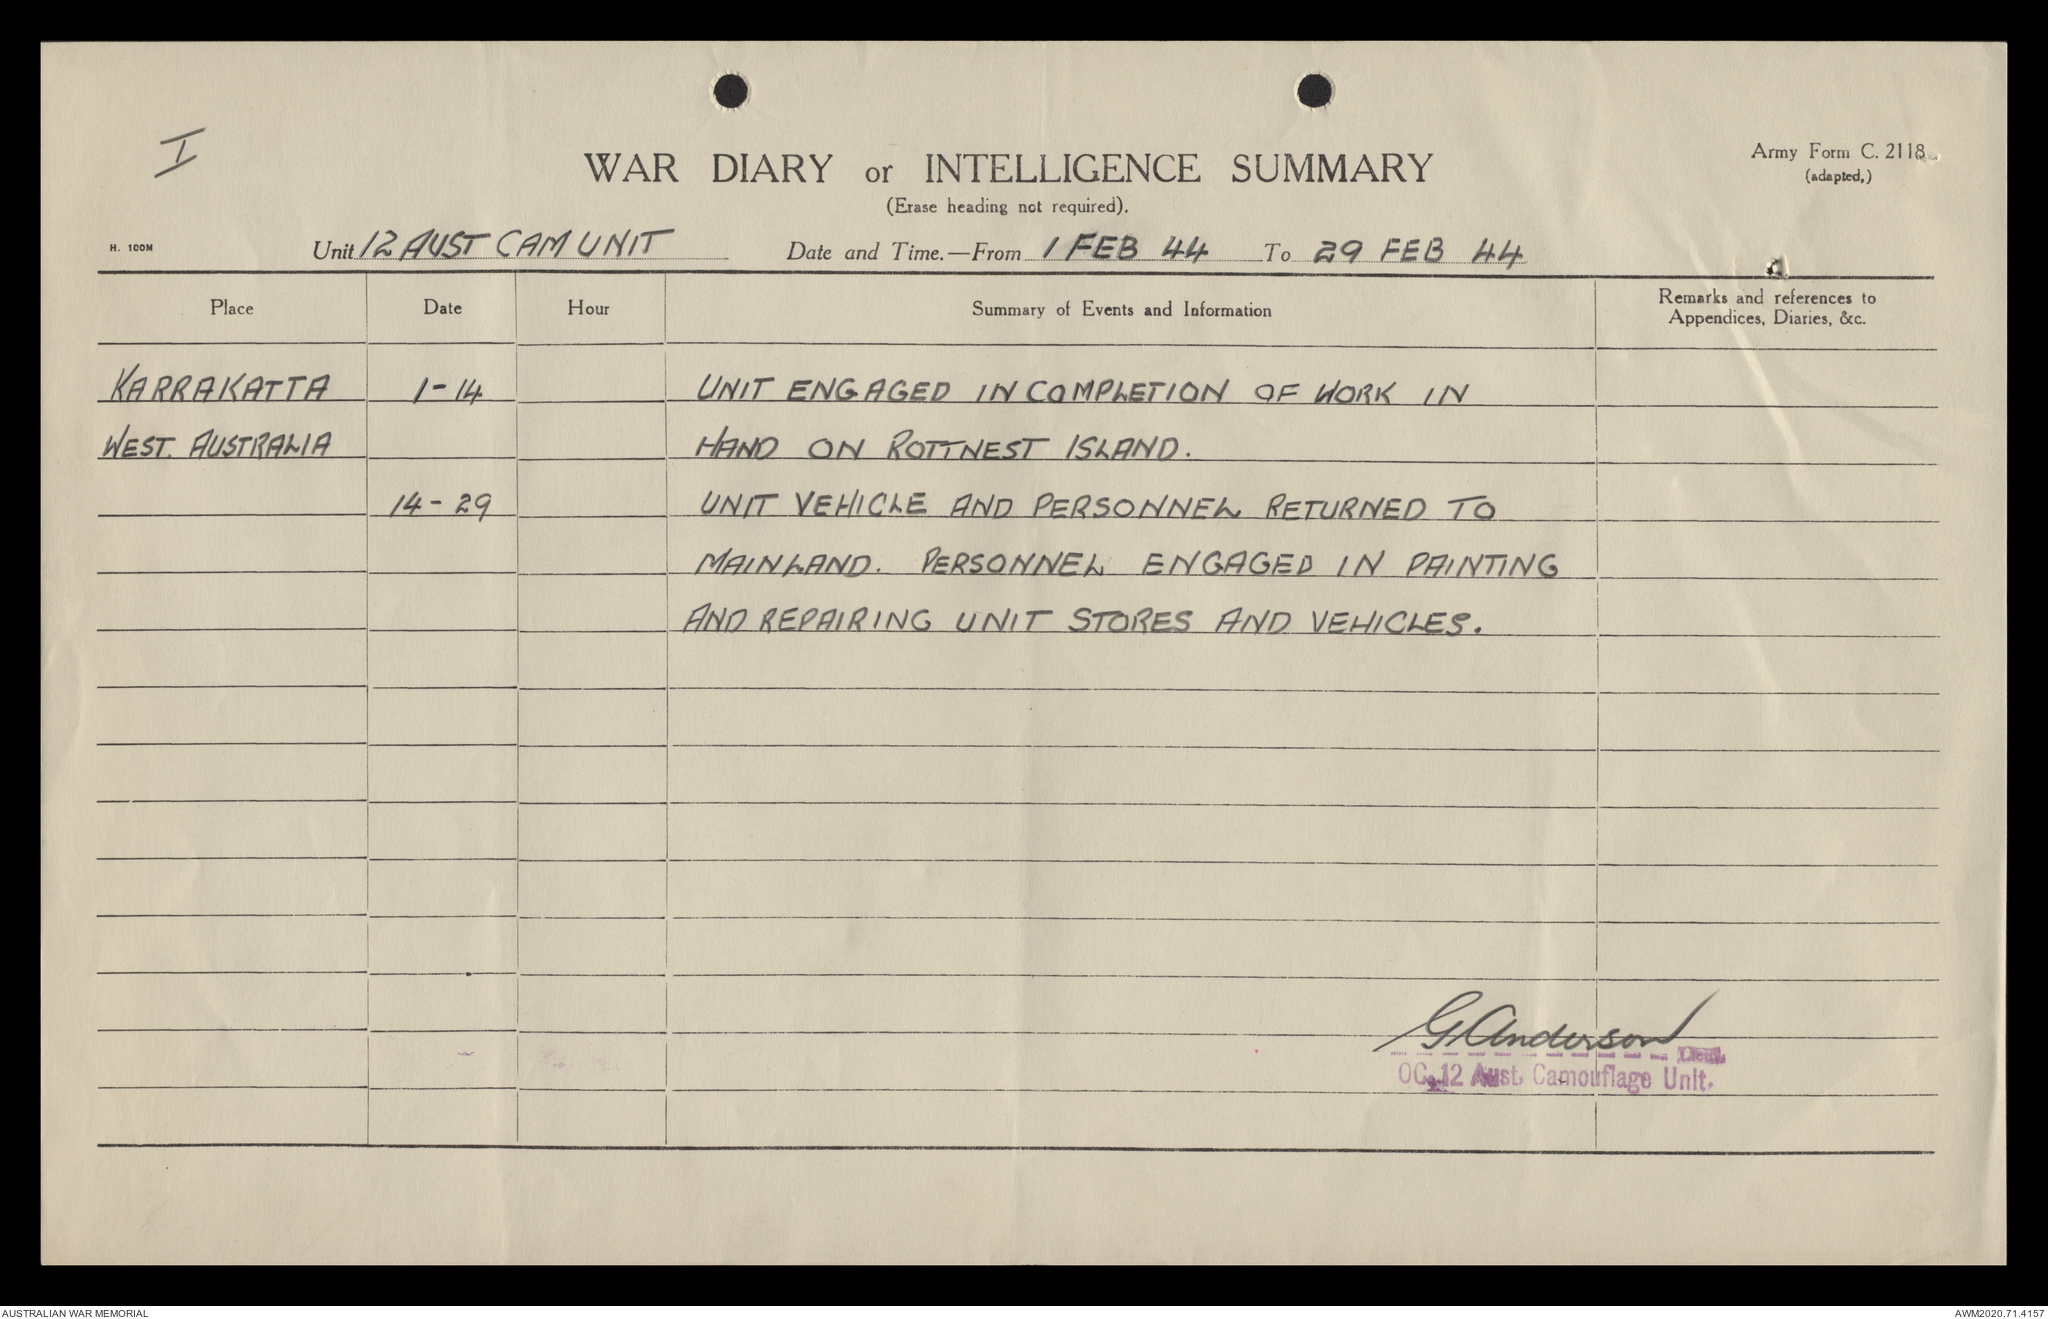 I
WAR DIARY or INTELLIGENCE SUMMARY
Army Form C. 2118
(adapted,)
(Erase heading not required).
H. 100M
Unit 12 AUST CAM UNIT Date and Time.—From 1 FEB 44 To 29 FEB 44
Place Date Hour Summary of Events and Information Remarks and references to
Appendices, Diaries, &c.
KARRAKATTA 1-14 UNIT ENGAGED IN COMPLETION OF WORK IN
WEST. AUSTRALIA HAND ON ROTTNEST ISLAND.
14-29 UNIT VEHICLE AND PERSONNEL RETURNED TO
MAINLAND. PERSONNEL ENGAGED IN PAINTING
AND REPAIRING UNIT STORES AND VEHICLES.
G Anderson
Lieut.
OC. 12 Aust. Camouflage Unit.
AUSTRALIAN WAR MEMORIAL AWM2020.71.4157